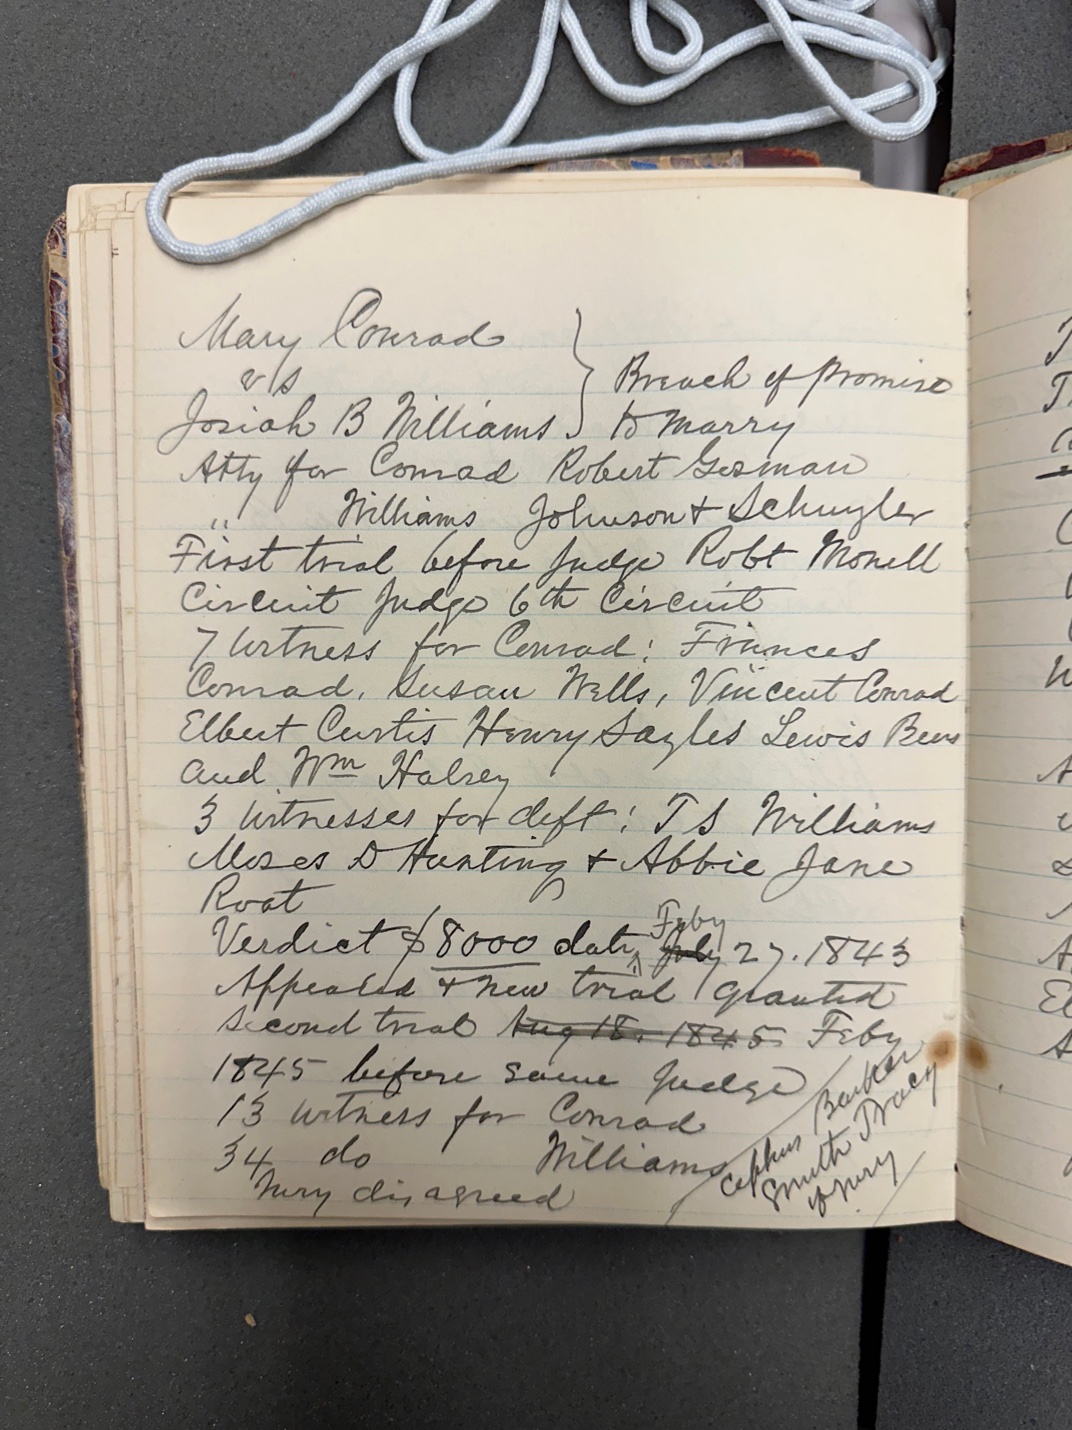 Mary Conrad
vs
Josiah B Williams } Breach of promise
to marry
Atty for Conrad Robert Gosman
" Williams Johnson & Schuyler
First trial before Judge Robt Monell
Circuit Judge 6th Circuit
7 witness for Conrad: Frances
Conrad, Susan Wells, Vincent Conrad
Elbert Curtis Henry Sayles Lewis Beers
and Wm Halsey
3 witnesses for deft: T S Williams
Moses D Hunting & Abbie Jane
Root
Verdict $8000 date July Feby 27. 1843
Appealed & new trial granted
Second trial Aug 18. 1845 Feby
1845 before same Judge
13 witness for Conrad
34 do Williams
Jury disagreed
Cephus Barker
Smith Tracy
of jury